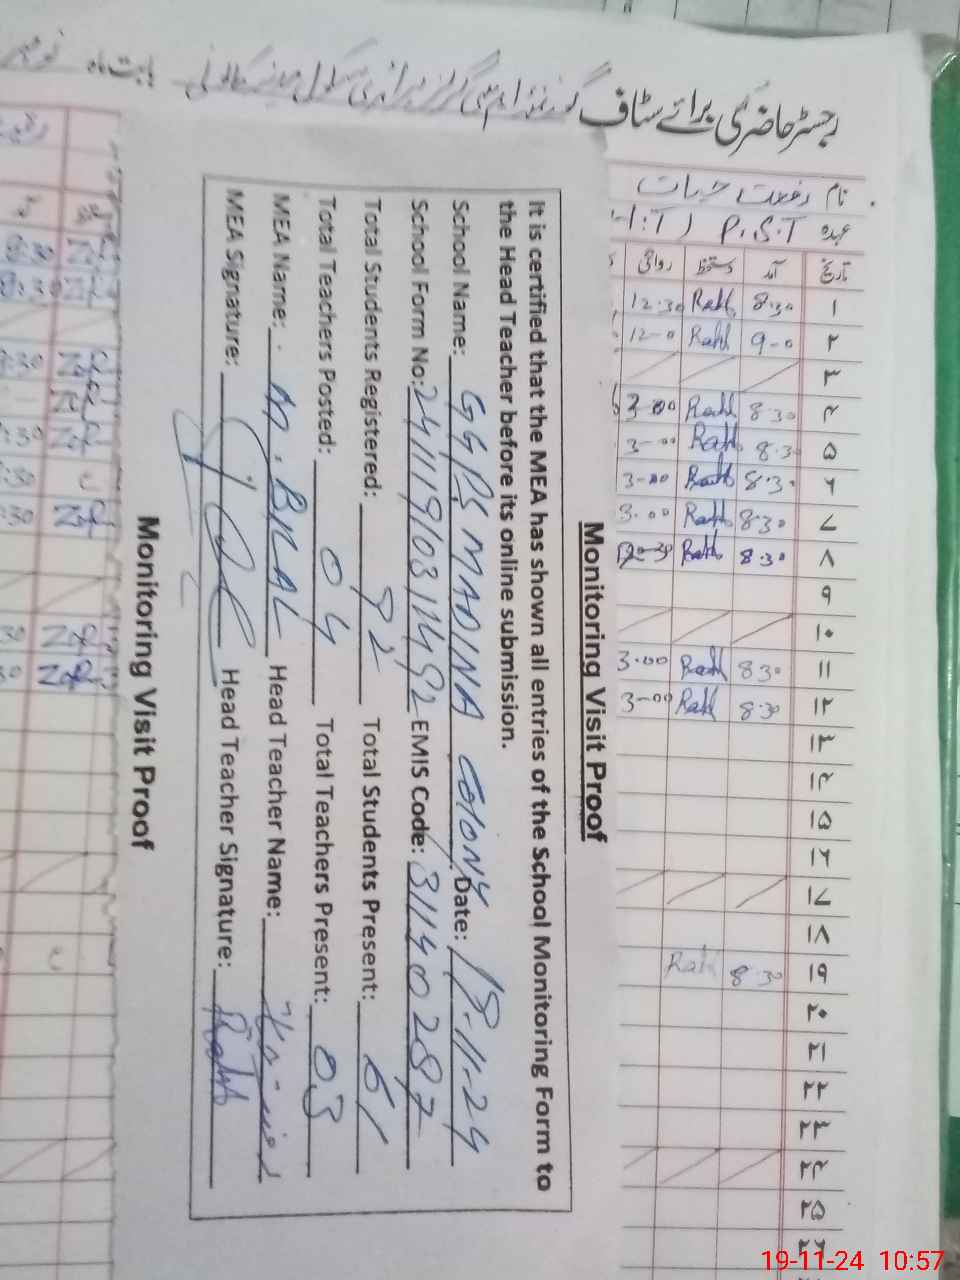 رجسٹر حاضری برائے سٹاف
بابت ماہ
نام رفعت حیات
عہدہ P.S.T (H.T)
تاریخ آمد دستخط روانگی
۱ 8.30 Raht 12.30
۲ 9-0 Raht 12-0
۳
۴ 8.30 Raht 3-00
۵ 8.30 Raht 3-00
۶ 8.30 Raht 3-00
۷ 8.30 Raht 3.00
۸ 8.30 Raht
۹
۱۰
۱۱ 8.30 Raht 3.00
۱۲ 8.30 Raht 3-00
۱۳
۱۴
۱۵
۱۶
۱۷
۱۸
۱۹ 8.30 Raht
۲۰
۲۱
۲۲
۲۳
۲۴
۲۵
Monitoring Visit Proof
It is certified that the MEA has shown all entries of the School Monitoring Form to
the Head Teacher before its online submission.
School Name: GGPS MADINA COLONY Date: 19-11-24
School Form No: EMIS Code: 31140287
Total Students Registered: 92 Total Students Present: 61
Total Teachers Posted: 04 Total Teachers Present: 03
MEA Name: M. BILAL Head Teacher Name:
MEA Signature: Head Teacher Signature: Raht
Monitoring Visit Proof
19-11-24 10:57